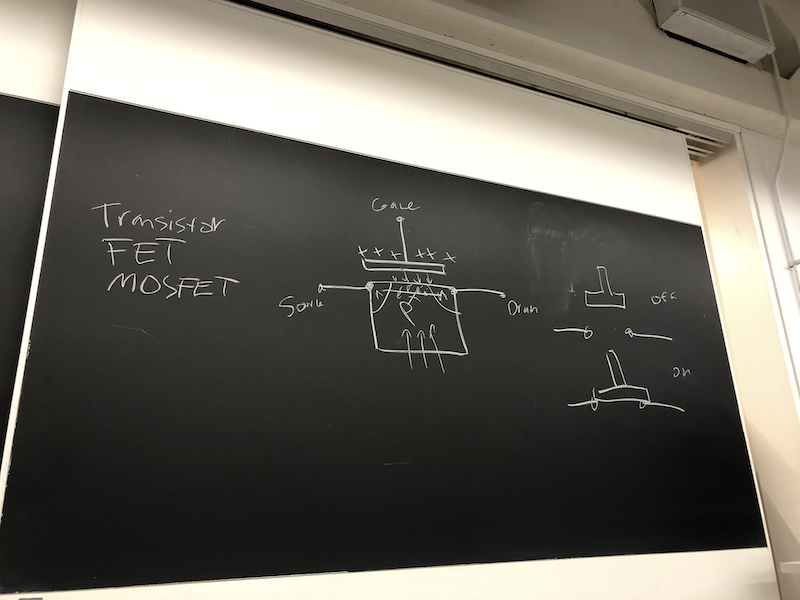 Transistor
FET
MOSFET
Gate
+ + + + + +
Source
Drain
n
n
P
off
on